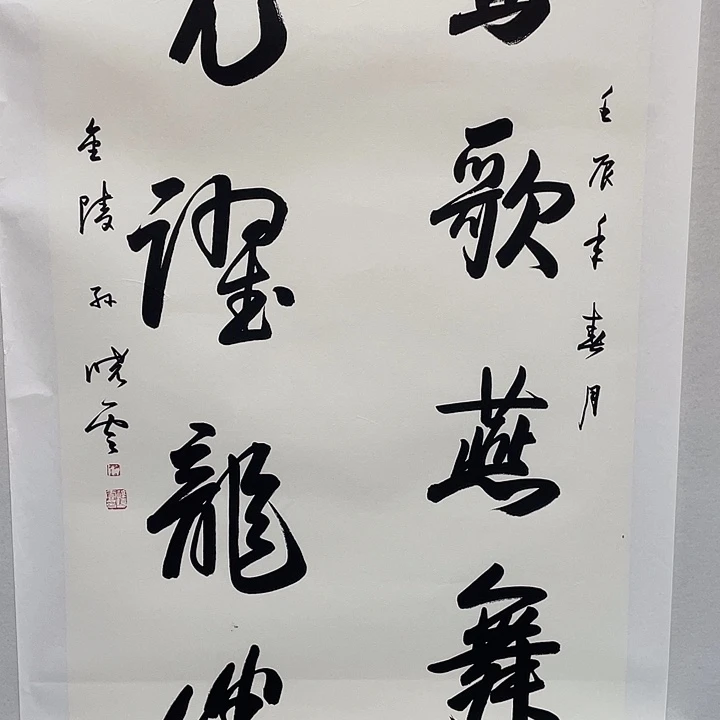 壬辰年春月
歌燕舞
躍龍
金陵孫曉雲